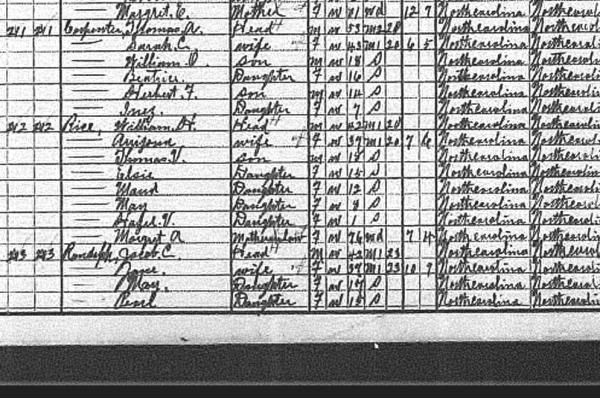 Margret E. Mother F W 81 Wd 12 7 Northcarolina Northcarolina
241 241 Carpenter, Thomas A. Head M W 53 M1 28 Northcarolina Northcarolina
Sarah C. wife F W 43 M1 28 6 5 Northcarolina Northcarolina
William son M W 18 S Northcarolina Northcarolina
Daughter F W 16 S Northcarolina Northcarolina
Herbert F. son M W 14 S Northcarolina Northcarolina
Inez Daughter F W 7 S Northcarolina Northcarolina
242 242 Rice, William H. Head M W 42 M1 20 Northcarolina Northcarolina
wife F W 37 M1 20 7 6 Northcarolina Northcarolina
Thomas V. son M W 18 S Northcarolina Northcarolina
Elsie Daughter F W 15 S Northcarolina Northcarolina
Maud Daughter F W 12 S Northcarolina Northcarolina
May Daughter F W 8 S Northcarolina Northcarolina
Hazel V. Daughter F W 1 S Northcarolina Northcarolina
Margret A Motherinlaw F W 76 Wd 7 4 Northcarolina Northcarolina
243 243 Randolph, Jacob C. Head M W 42 M1 23 Northcarolina Northcarolina
wife F W 37 M1 23 10 7 Northcarolina Northcarolina
May. Daughter F W 17 S Northcarolina Northcarolina
Pearl Daughter F W 15 S Northcarolina Northcarolina